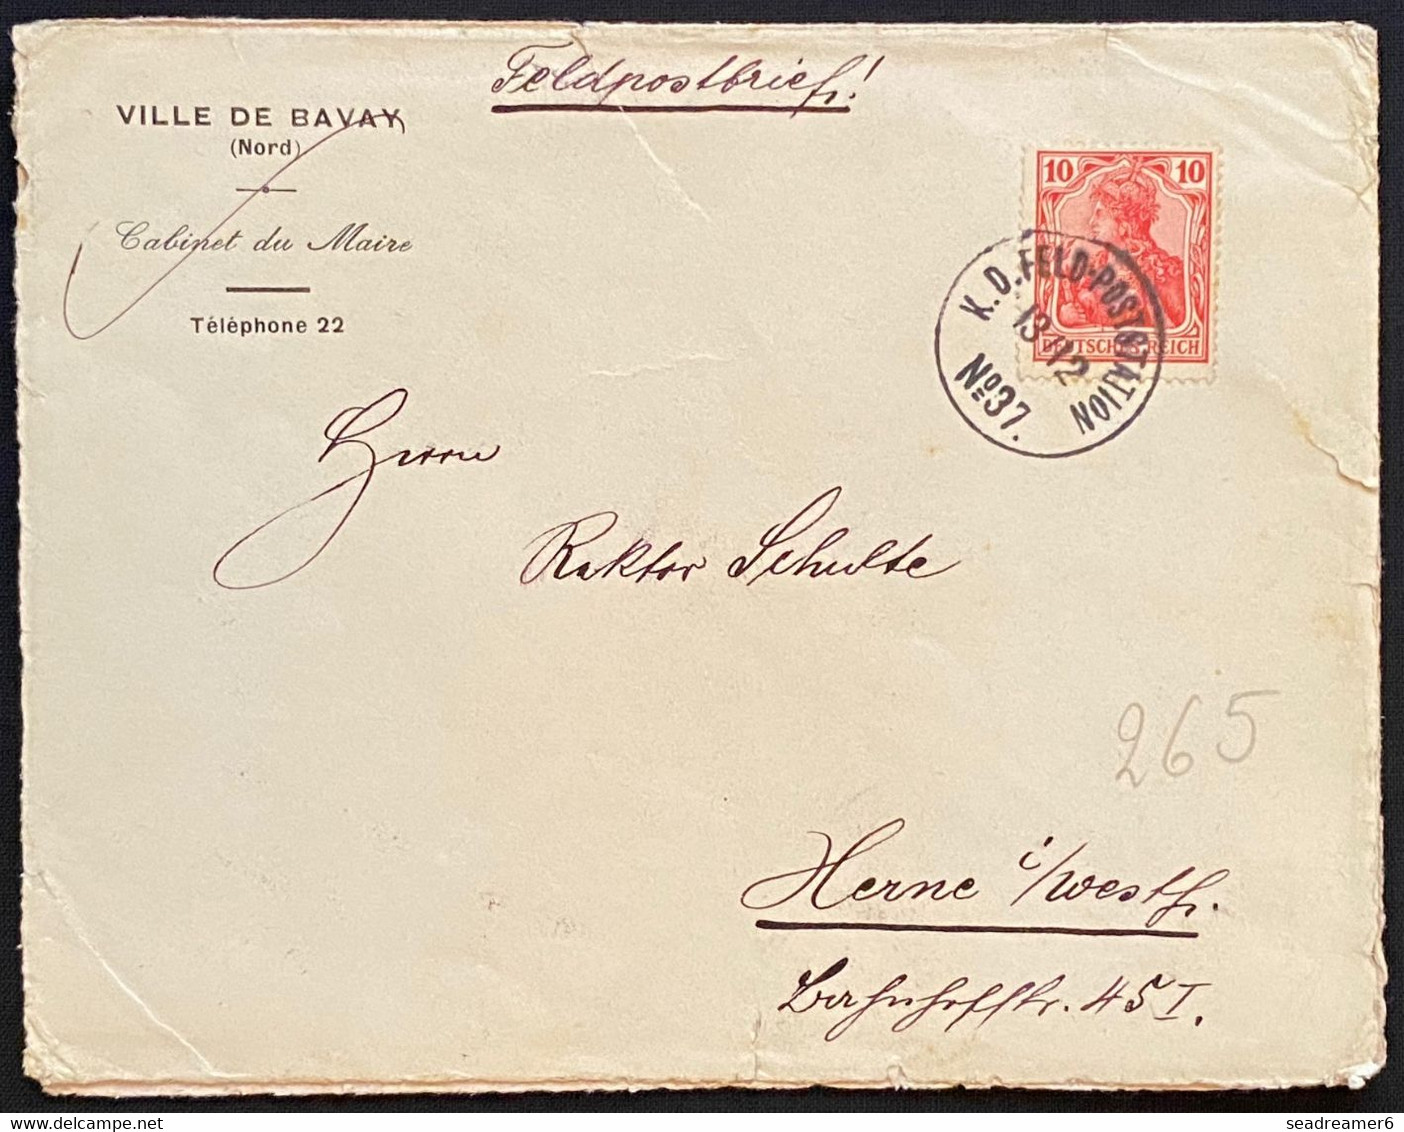 Feldpostbrief!
VILLE DE BAVAY
(Nord)
Cabinet du Maire
Téléphone 22
10 10
DEUTSCHES REICH
K.D.FELD-POSTSTATION
13 12
No 37.
Herrn
Rektor Schulte
265
Herne i/Westf.
Bahnhofstr. 45 I.
delcampe.net
seadreamer6